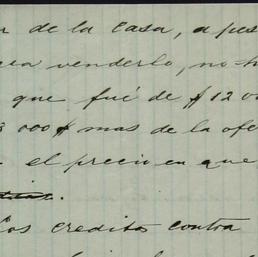 de la casa, a pes
venderlo, no h
que fué de $12 00
000 $ mas de la ofe
el precio en que
los creditos contra